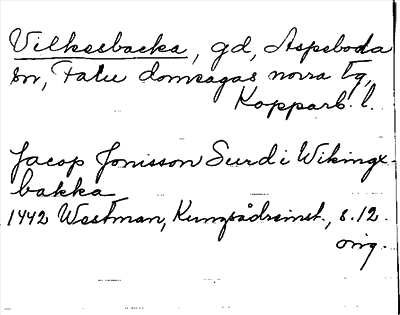 Vilksbacka, gd, Aspeboda
sn, Falu domsagas norra tg,
Kopparb. l.
Jacop Jonisson Surd i Wikingx-
bakka
1442 Westman, Kungsådreinst., s. 12.
orig.